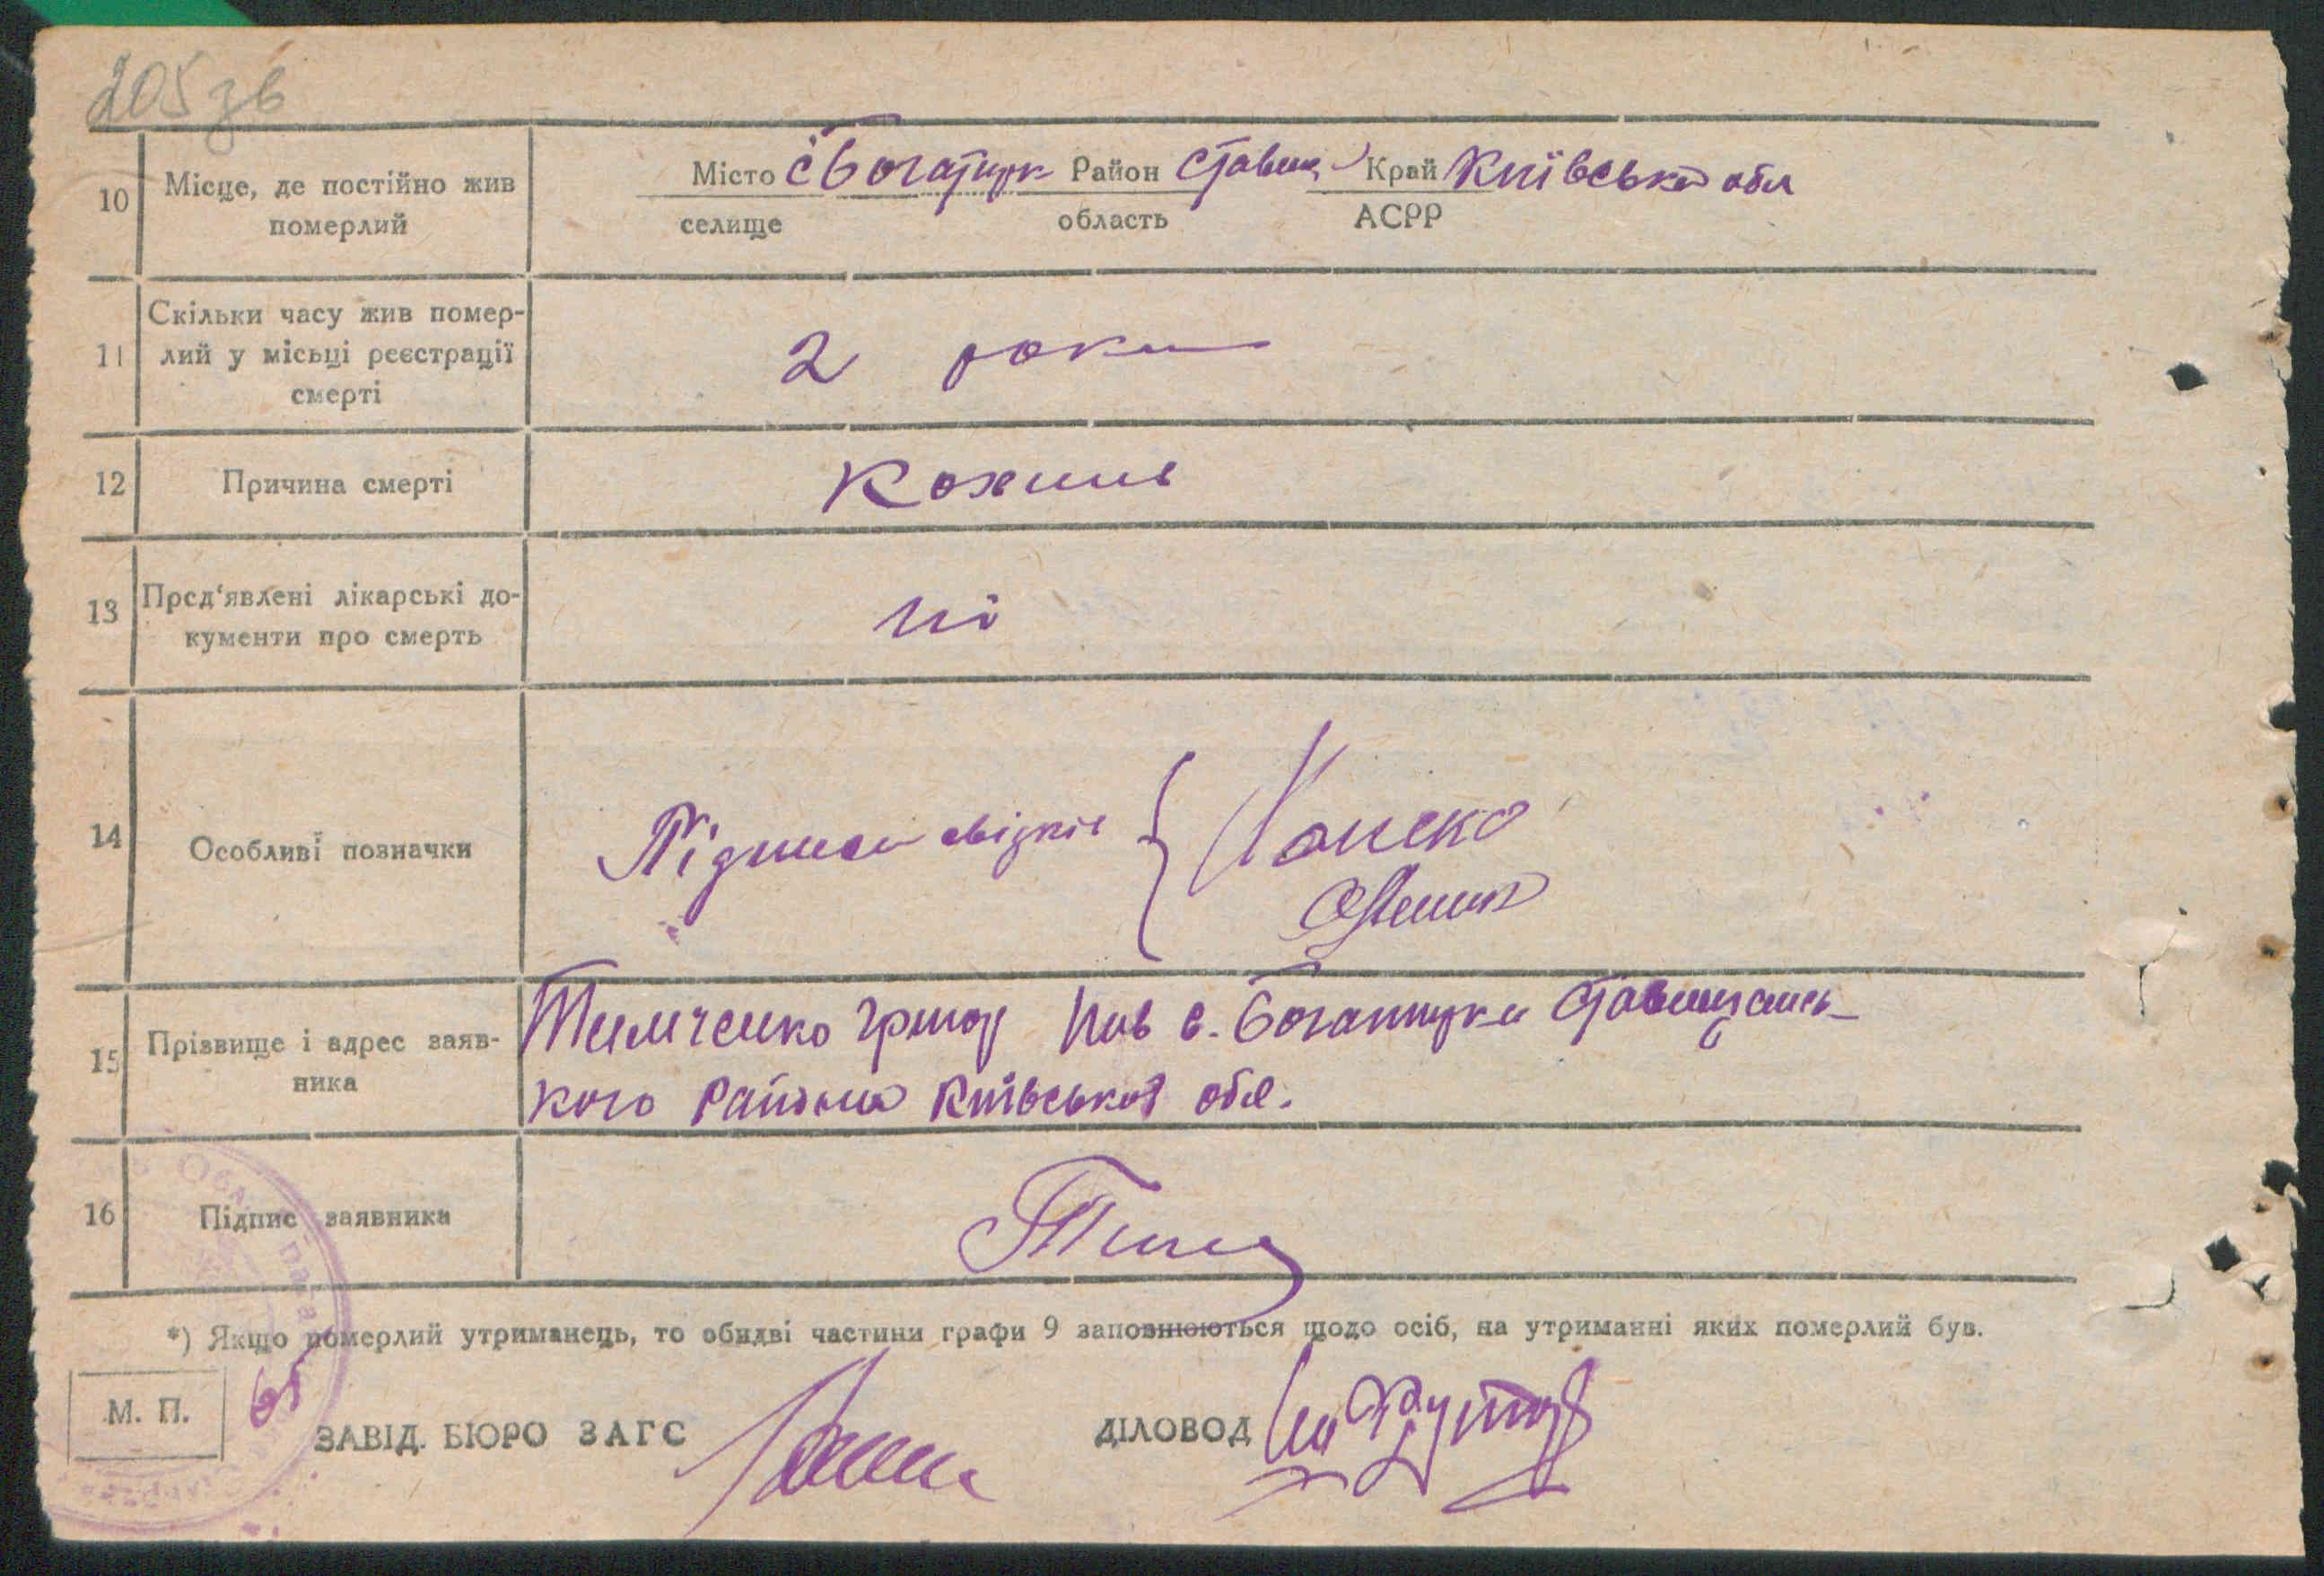 205 зв
10 Місце, де постійно жив померлий
Місто с Богатирк Район Ставищ Край Київської обл
селище область АСРР
11 Скільки часу жив помер-
лий у місьці реєстрації
смерті
2 роки
12 Причина смерті
Кохлиш
13 Пред'явлені лікарські до-
кументи про смерть
ні
14 Особливі позначки
Підписи свідків
15 Прізвище і адрес заяв-
ника
Тимченко Григор с. Богатирка Ставищансь-
кого району Київської обл.
16 Підпис заявника
Тим
*) Якщо померлий утриманець, то обидві частини графи 9 заповнюються щодо осіб, на утриманні яких померлий був.
М. П.
ЗАВІД. БЮРО ЗАГС
ДІЛОВОД